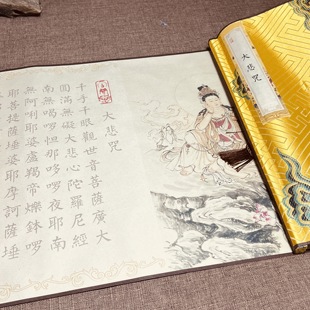 大悲咒
大悲咒
千手千眼觀世音菩薩廣大
圓滿無礙大悲心陀羅尼經
南無喝囉怛那哆囉夜耶南
無阿唎耶婆盧羯帝爍鉢囉
耶菩提薩埵婆耶摩訶薩埵